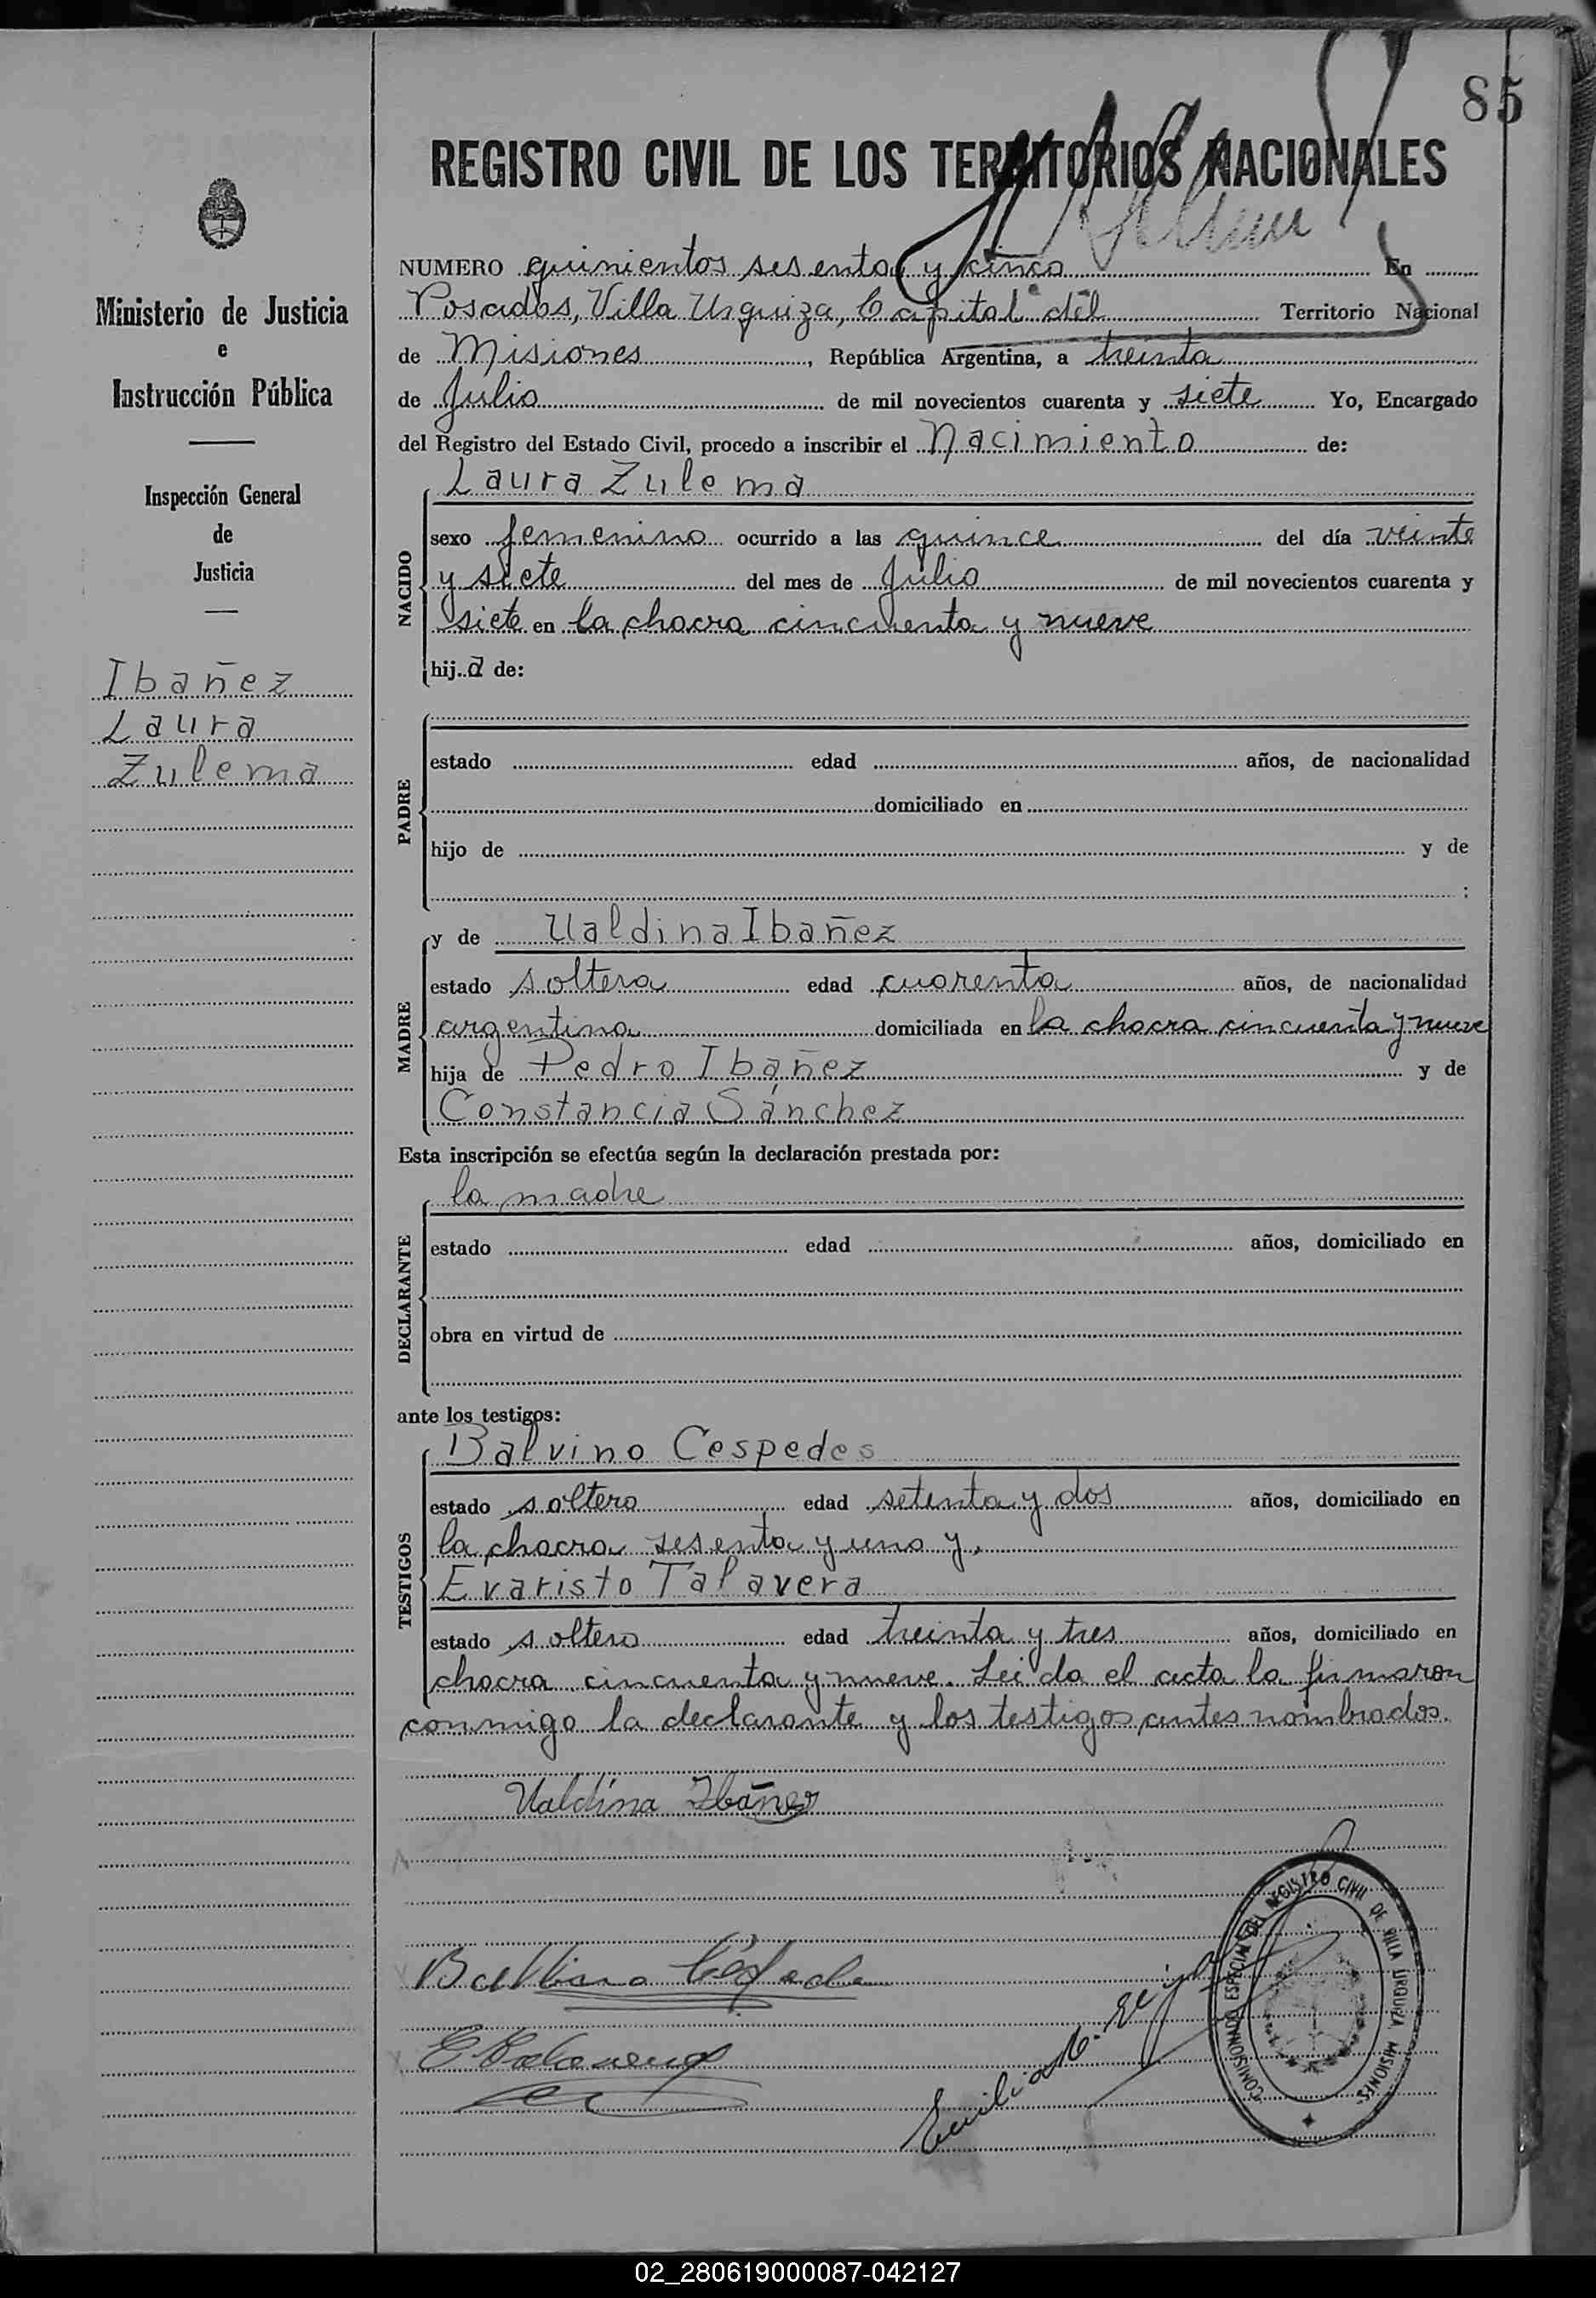 85
REGISTRO CIVIL DE LOS TERRITORIOS NACIONALES
Ministerio de Justicia
e
Instrucción Pública
Inspección General
de
Justicia
Ibañez
Laura
Zulema
NUMERO quinientos sesenta y cinco En
Posadas, Villa Urquiza, Capital del Territorio Nacional
de Misiones, República Argentina, a treinta
de Julio de mil novecientos cuarenta y siete Yo, Encargado
del Registro del Estado Civil, procedo a inscribir el Nacimiento de:
NACIDO
Laura Zulema
sexo femenino ocurrido a las quince del día veinte
y siete del mes de Julio de mil novecientos cuarenta y
siete en la chacra cincuenta y nueve
hija de:
PADRE
estado edad años, de nacionalidad
domiciliado en
hijo de y de
;
MADRE
y de Ualdina Ibañez
estado soltera edad cuarenta años, de nacionalidad
argentina domiciliada en la chacra cincuenta y nueve
hija de Pedro Ibañez y de
Constancia Sánchez
Esta inscripción se efectúa según la declaración prestada por:
DECLARANTE
la madre
estado edad años, domiciliado en
obra en virtud de
ante los testigos:
TESTIGOS
Balvino Cespedes
estado soltero edad setenta y dos años, domiciliado en
la chacra sesenta y uno y,
Evaristo Talavera
estado soltero edad treinta y tres años, domiciliado en
chacra cincuenta y nueve. Leida el acta la firmaron
conmigo la declarante y los testigos antes nombrados.
Ualdina Ibáñez
E Talavera
COMISIONADO ESPECIAL DEL REGISTRO CIVIL DE VILLA URQUIZA MISIONES
02_280619000087-042127